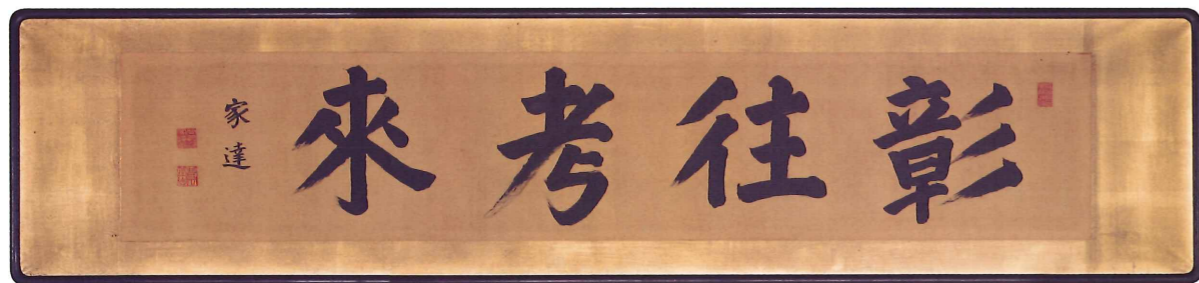 彰往考來
家達